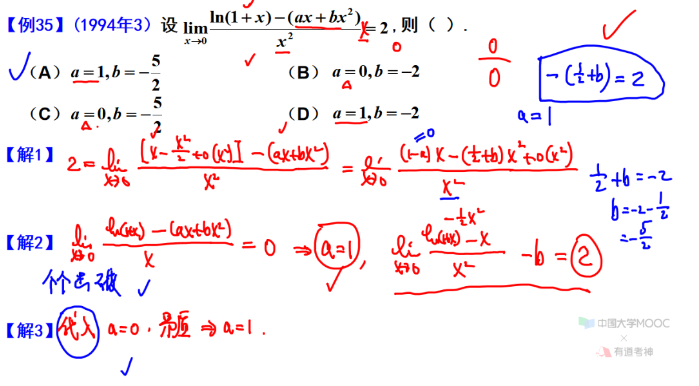 【例35】(1994年3) 设 lim x→0 [ln(1+x)-(ax+bx²)]/x² = 2, 则( ).
x 0 0/0 -(1/2+b)=2
(A) a=1, b=-5/2 (B) a=0, b=-2
(C) a=0, b=-5/2 (D) a=1, b=-2 a=1
【解1】 2 = lim x→0 {[x-x²/2+o(x²)]-(ax+bx²)}/x² = lim x→0 [(1-a)x-(1/2+b)x²+o(x²)]/x² =0
1/2+b=-2
b=-2-1/2
=-5/2
【解2】 lim x→0 [ln(1+x)-(ax+bx²)]/x = 0 ⇒ a=1, lim x→0 [ln(1+x)-x]/x² - b = 2 -1/2x²
个个击破
【解3】 代入 a=0. 矛盾 ⇒ a=1.
中国大学MOOC
×
有道考神